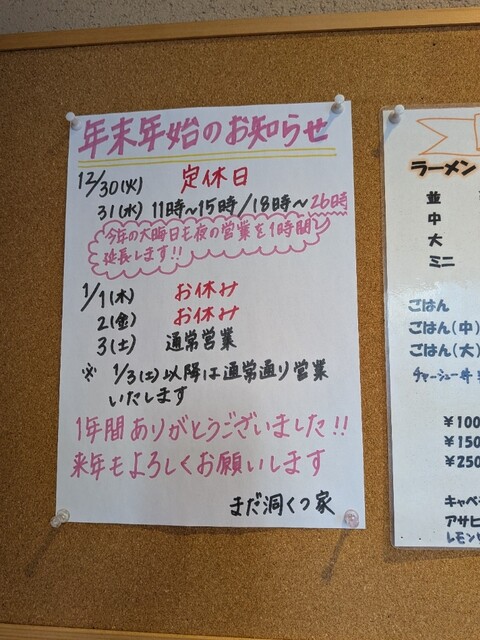 年末年始のお知らせ
12/30(火) 定休日
31(水) 11時〜15時/18時〜26時
今年の大晦日も夜の営業を1時間
延長します!!
1/1(木) お休み
2(金) お休み
3(土) 通常営業
※ 1/3(土)以降は通常通り営業
いたします
1年間ありがとうございました!!
来年もよろしくお願いします
まだ洞くつ家
ラーメン
並
中
大
ミニ
ごはん
ごはん(中)
ごはん(大)
チャーシュー丼
¥100
¥150
¥250
キャベ
アサヒ
レモン